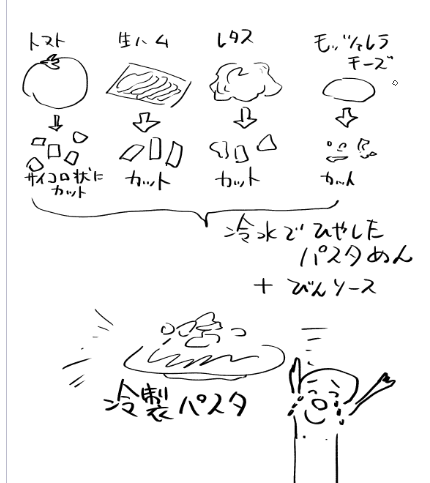 トマト
生ハム
レタス
モッツァレラ
チーズ
サイコロ状に
カット
カット
カット
カット
冷水でひやした
パスタめん
＋びんソース
冷製パスタ